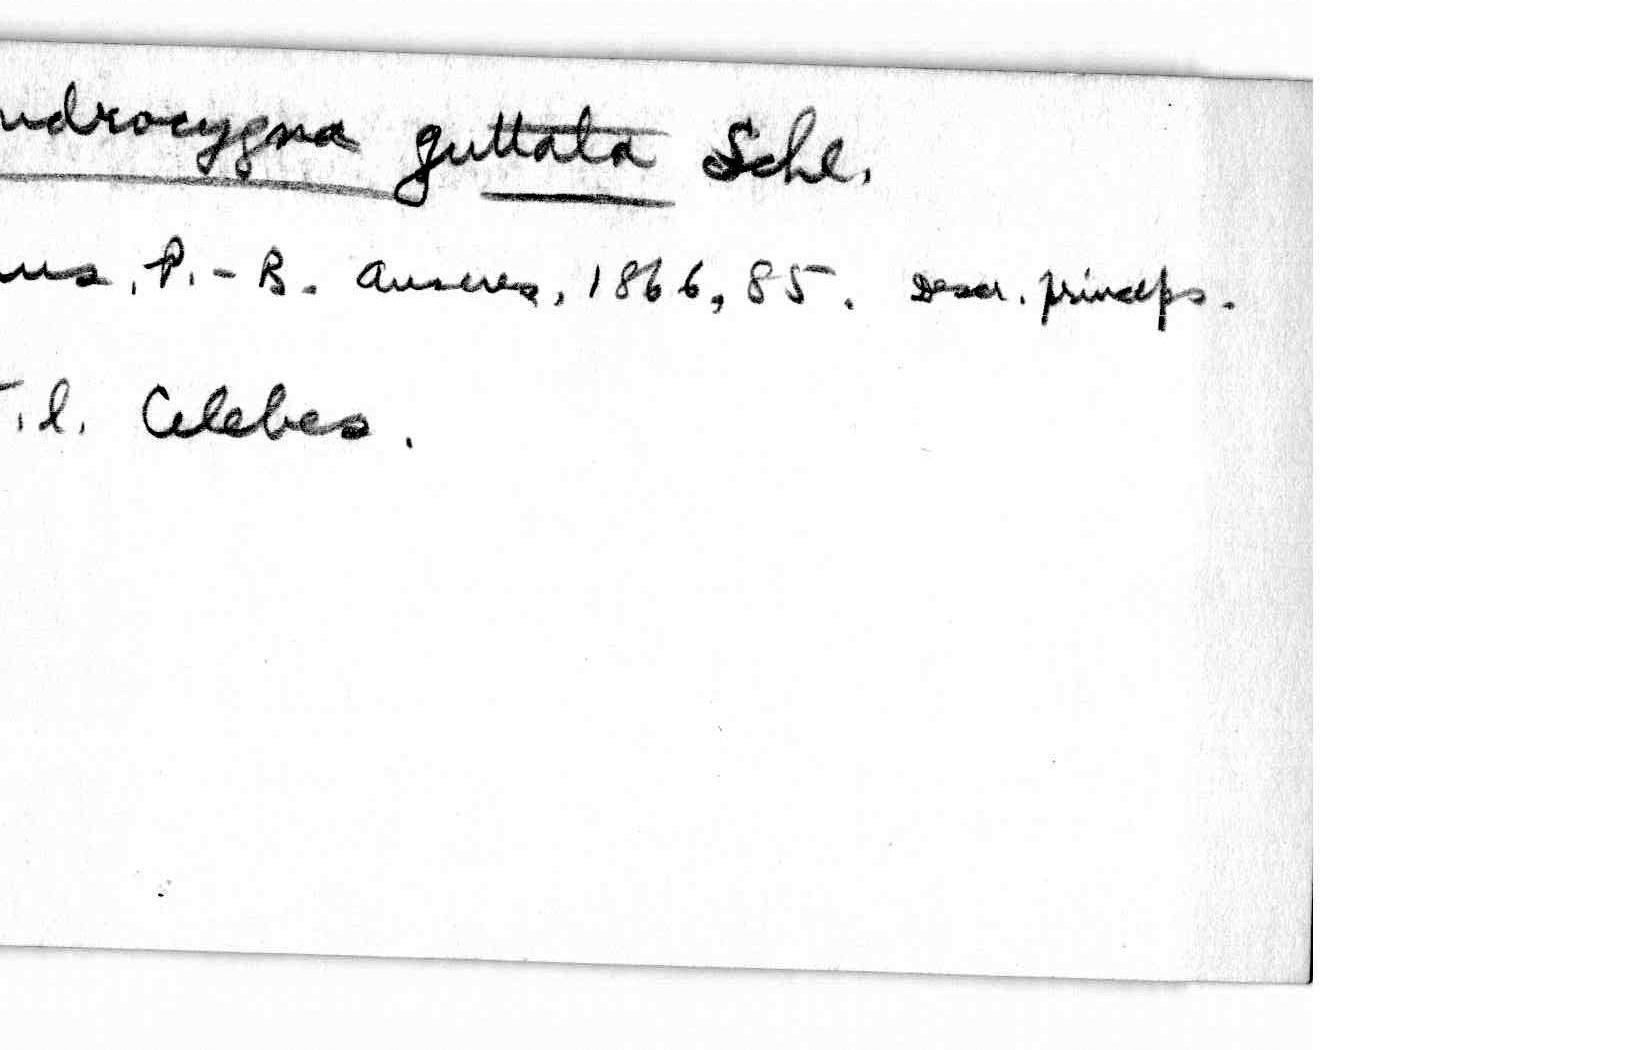 ndrocygna guttata Schl.
us, P.-B. Anseres, 1866, 85. Descr. princeps.
T.l. Celebes.